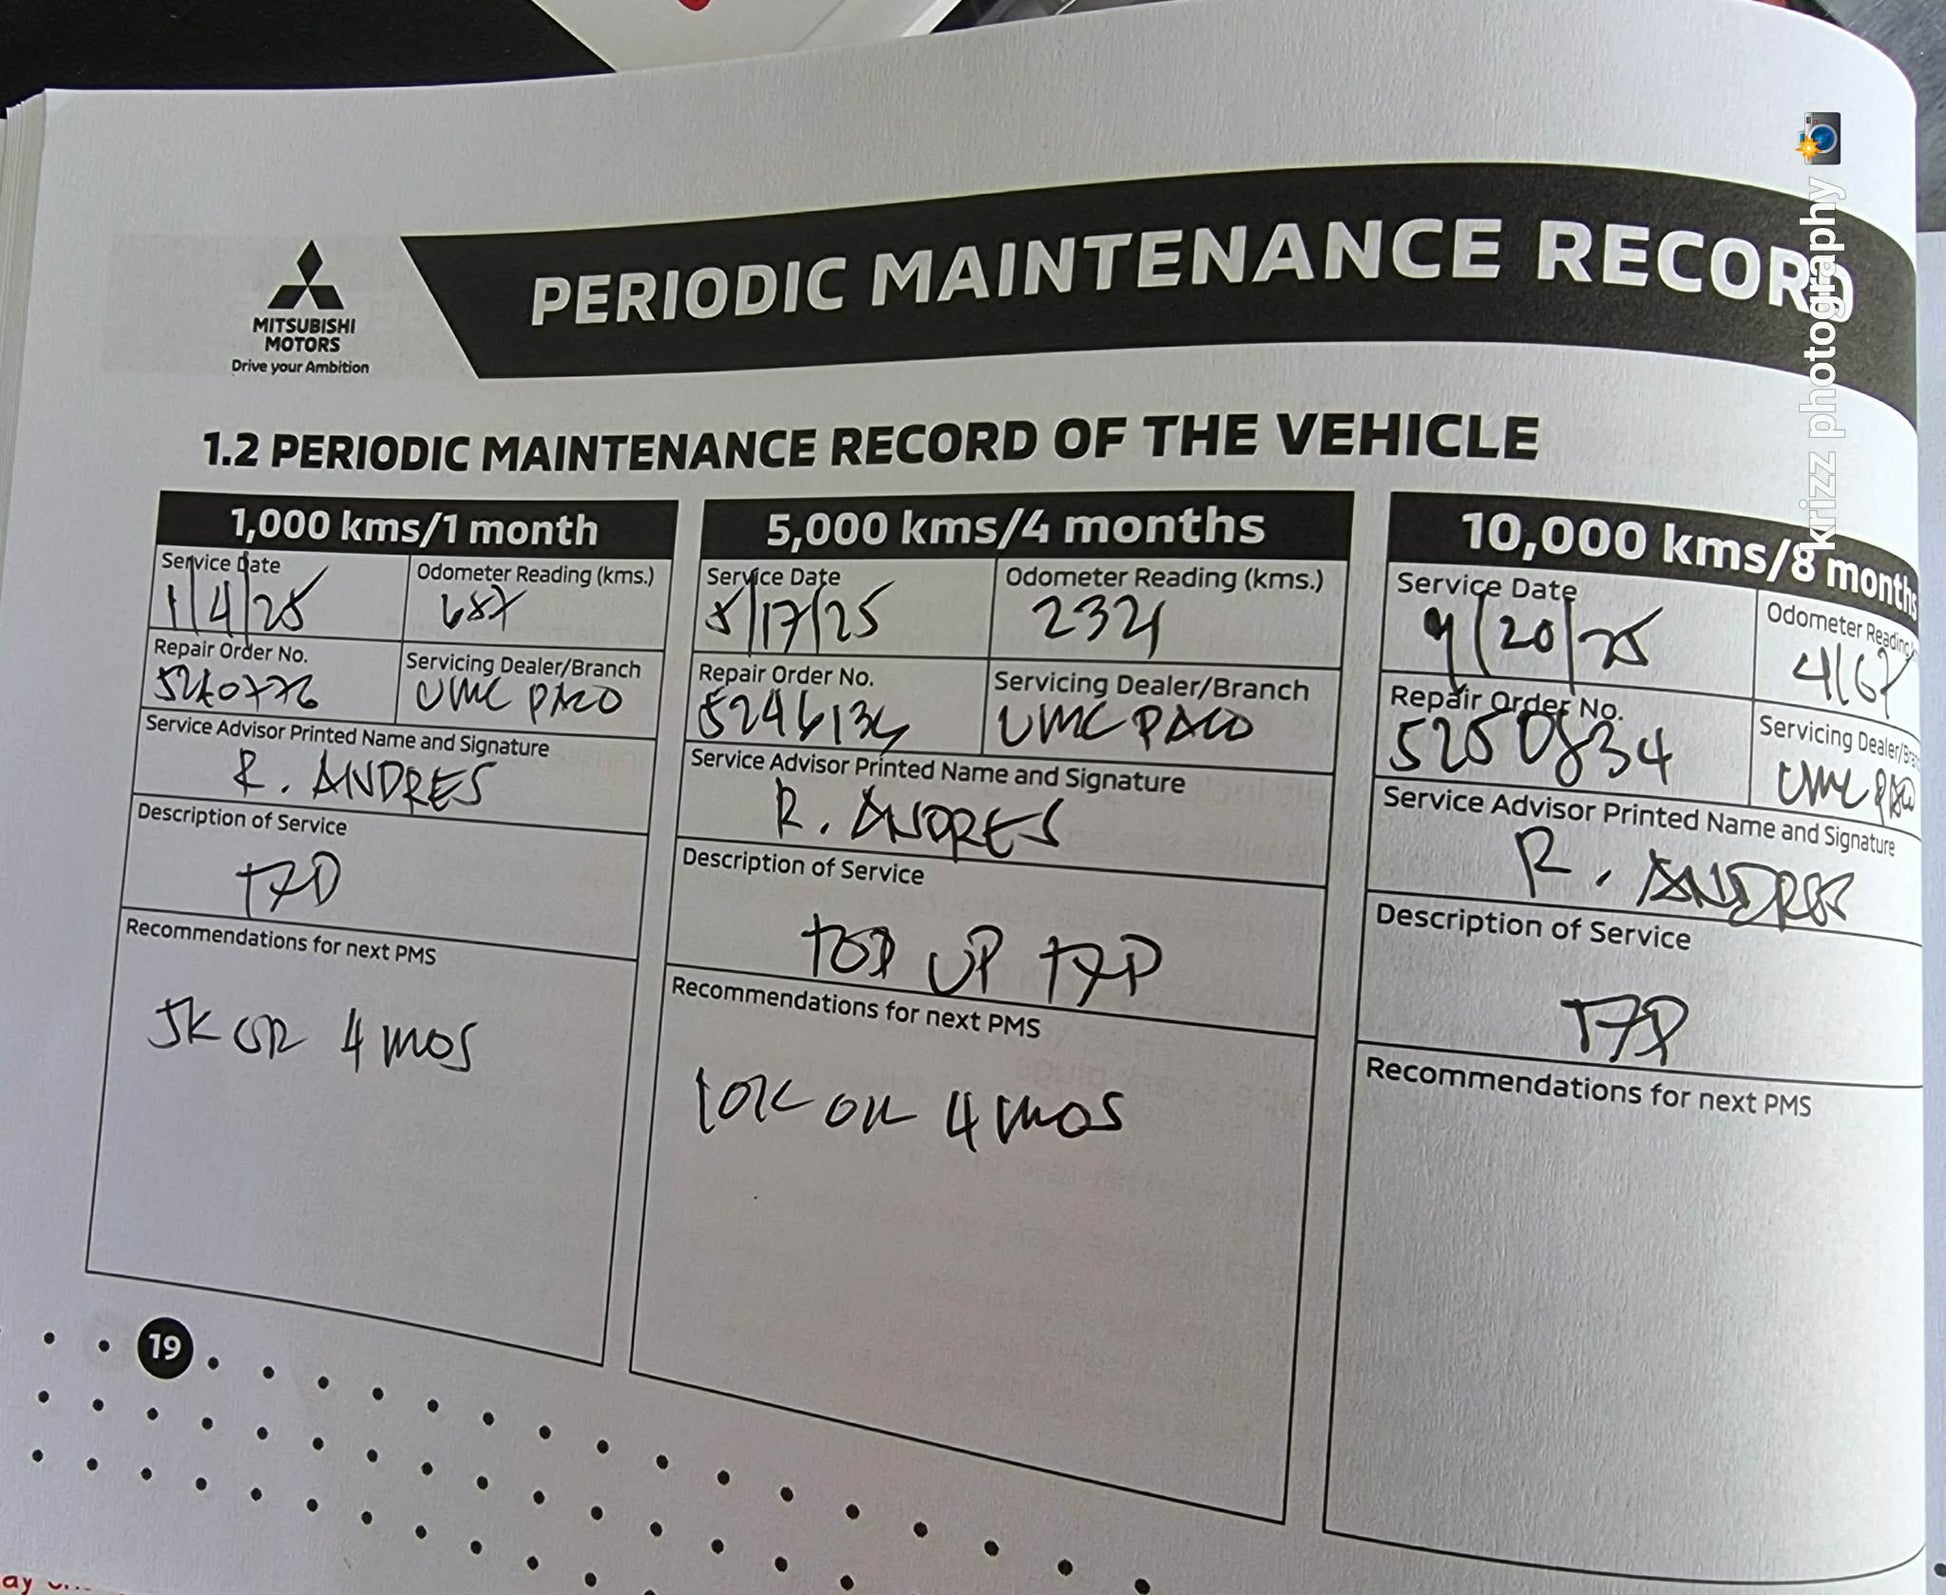 krizz photography
MITSUBISHI
MOTORS
Drive your Ambition
PERIODIC MAINTENANCE RECORD
1.2 PERIODIC MAINTENANCE RECORD OF THE VEHICLE
1,000 kms/1 month
Service Date
1/4/25
Odometer Reading (kms.)
687
Repair Order No.
Servicing Dealer/Branch
UMC PACO
Service Advisor Printed Name and Signature
R. ANDRES
Description of Service
Recommendations for next PMS
5K OR 4 MOS
5,000 kms/4 months
Service Date
5/17/25
Odometer Reading (kms.)
2321
Repair Order No.
Servicing Dealer/Branch
UMC PACO
Service Advisor Printed Name and Signature
R. ANDRES
Description of Service
TOP UP
Recommendations for next PMS
10K OR 4 MOS
10,000 kms/8 months
Service Date
9/20/25
Odometer Reading
4167
Repair Order No.
5250834
Servicing Dealer/
UMC PACO
Service Advisor Printed Name and Signature
R. ANDRES
Description of Service
Recommendations for next PMS
19